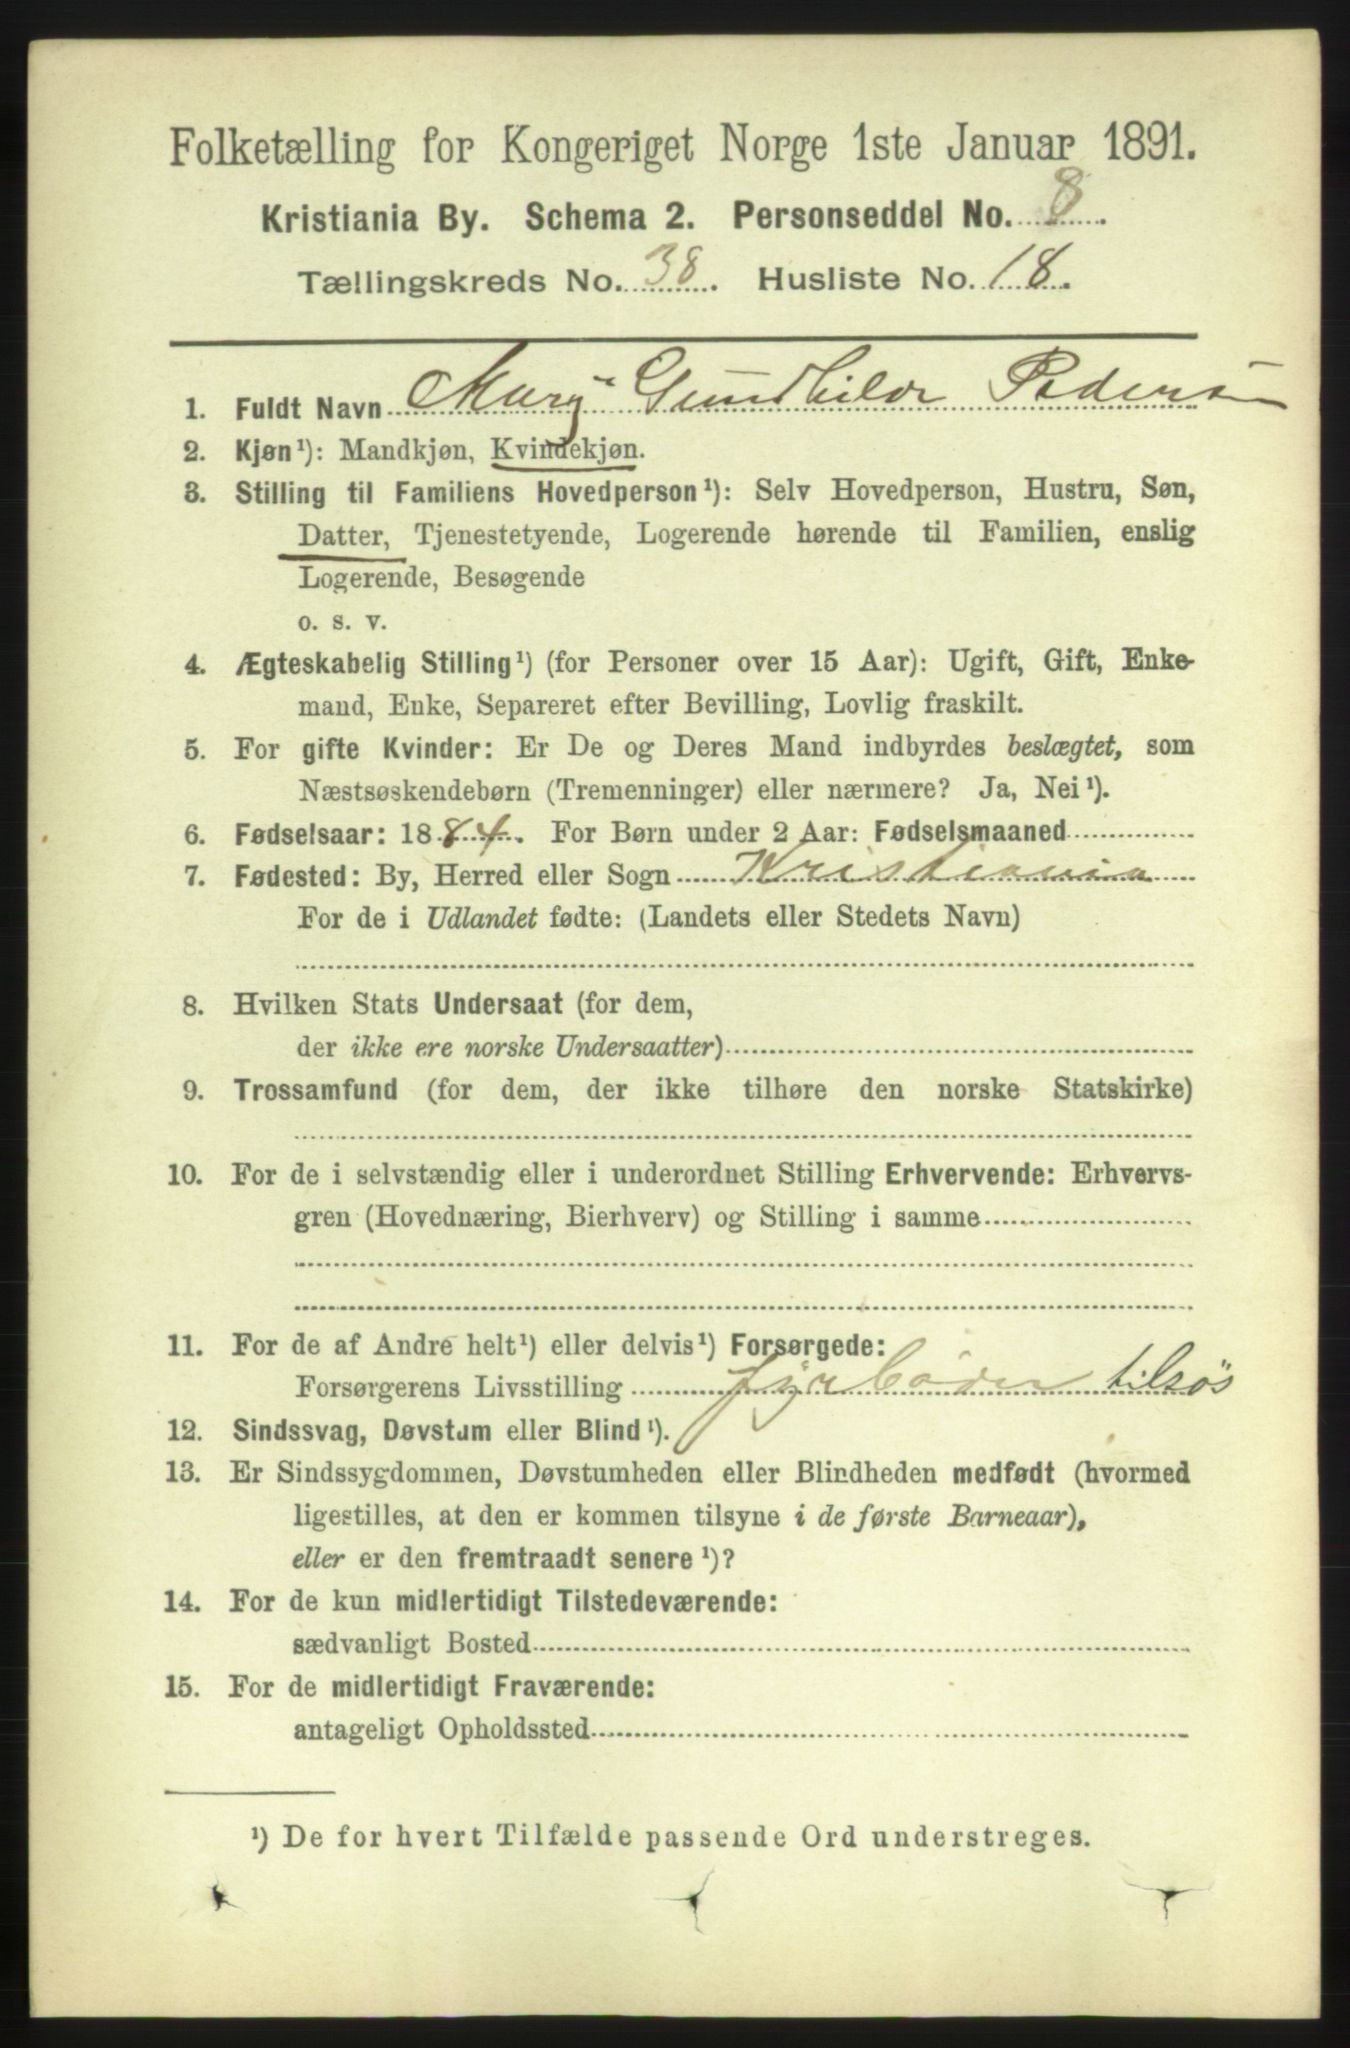 Folketælling for Kongeriget Norge 1ste Januar 1891.
Kristiania By. Schema 2. Personseddel No. 8.
Tællingskreds No. 38. Husliste No. 18.
1. Fuldt Navn Mary Gundhilde Pedersen
2. Kjøn¹): Mandkjøn, Kvindekjøn.
3. Stilling til Familiens Hovedperson¹): Selv Hovedperson, Hustru, Søn,
Datter, Tjenestetyende, Logerende hørende til Familien, enslig
Logerende, Besøgende
o. s. v.
4. Ægteskabelig Stilling¹) (for Personer over 15 Aar): Ugift, Gift, Enke-
mand, Enke, Separeret efter Bevilling, Lovlig fraskilt.
5. For gifte Kvinder: Er De og Deres Mand indbyrdes beslægtet, som
Næstsøskendebørn (Tremenninger) eller nærmere? Ja, Nei¹).
6. Fødselsaar: 1884. For Børn under 2 Aar: Fødselsmaaned
7. Fødested: By, Herred eller Sogn Kristiania
For de i Udlandet fødte: (Landets eller Stedets Navn)
8. Hvilken Stats Undersaat (for dem,
der ikke ere norske Undersaatter)
9. Trossamfund (for dem, der ikke tilhøre den norske Statskirke)
10. For de i selvstændig eller i underordnet Stilling Erhvervende: Erhvervs-
gren (Hovednæring, Bierhverv) og Stilling i samme
11. For de af Andre helt¹) eller delvis¹) Forsørgede:
Forsørgerens Livsstilling fyrbøder tilsøs
12. Sindssvag, Døvstum eller Blind¹).
13. Er Sindssygdommen, Døvstumheden eller Blindheden medfødt (hvormed
ligestilles, at den er kommen tilsyne i de første Barneaar),
eller er den fremtraadt senere¹)?
14. For de kun midlertidigt Tilstedeværende:
sædvanligt Bosted
15. For de midlertidigt Fraværende:
antageligt Opholdssted
¹) De for hvert Tilfælde passende Ord understreges.